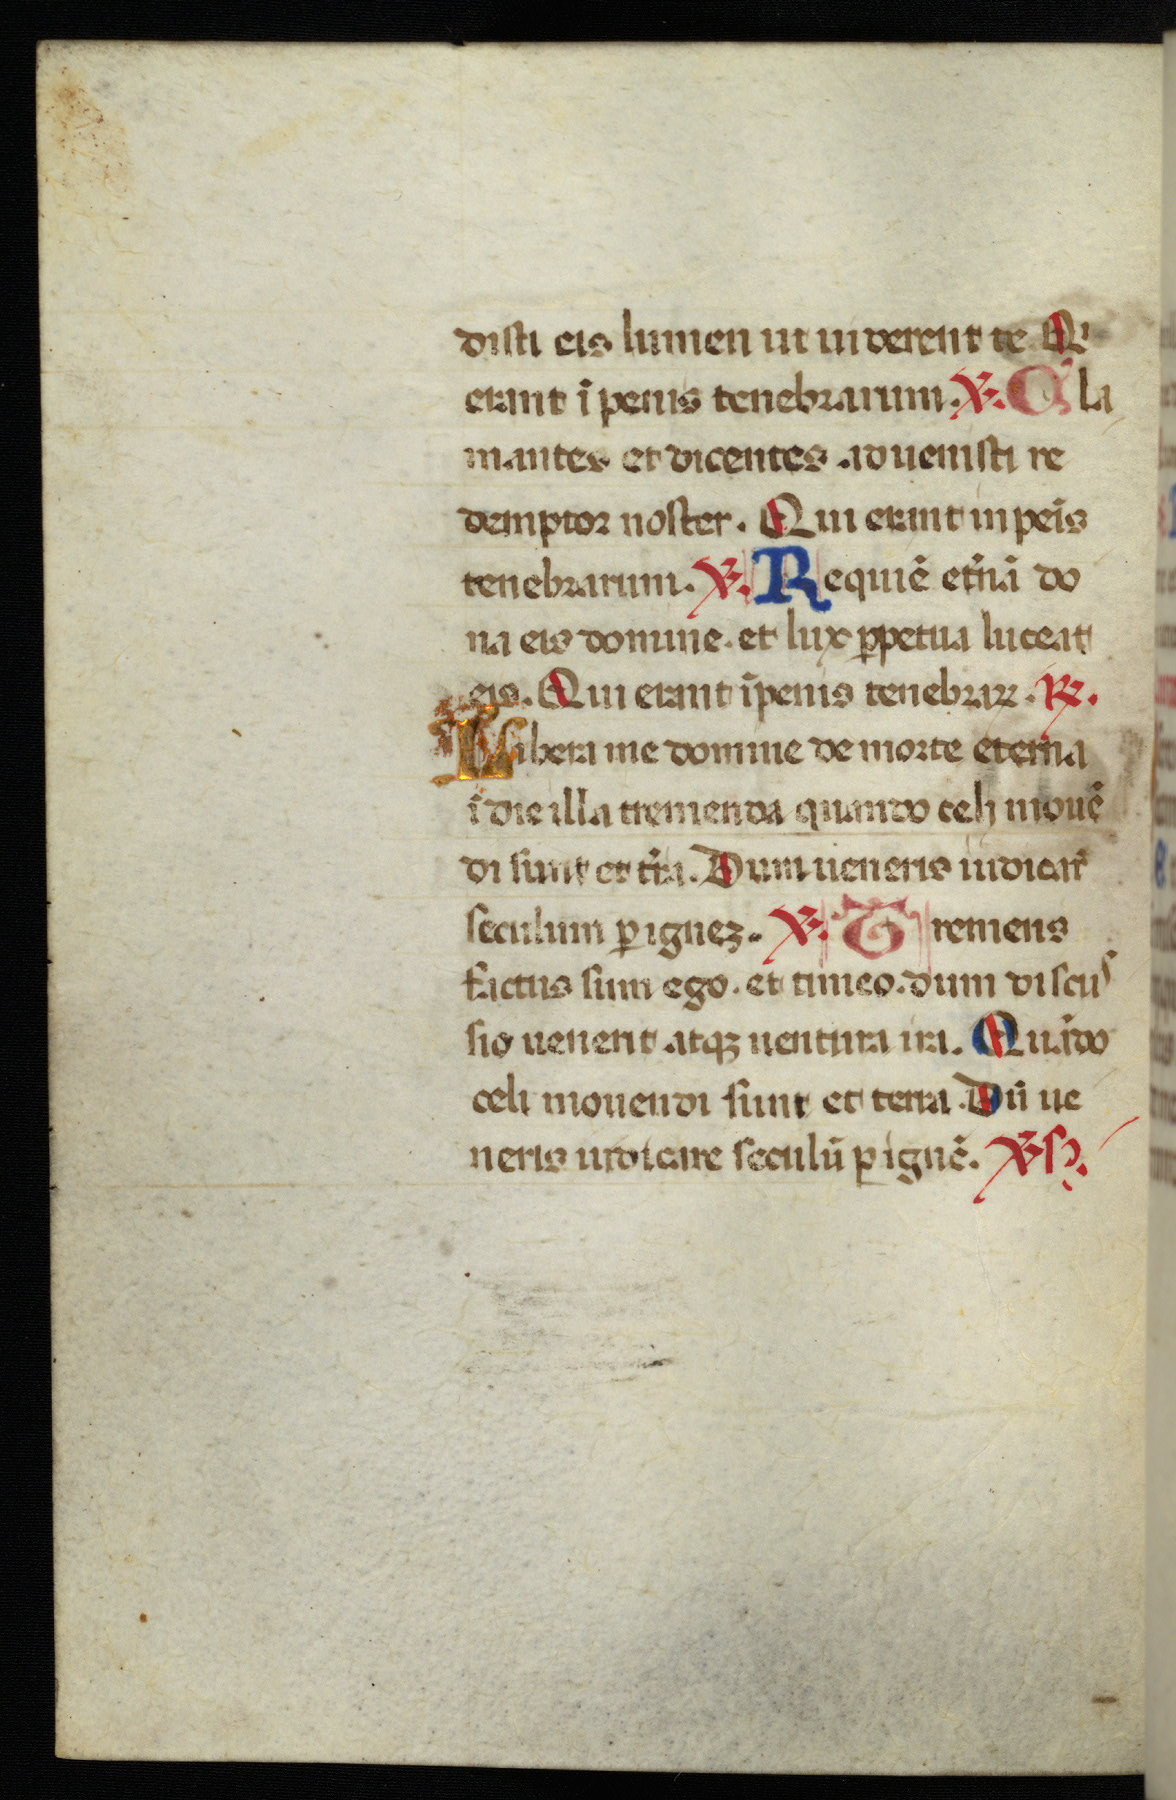 disti eis lumen ut uiderent te Q̇
erant ī penis tenebrarum. ℣. Cla
mantes et dicentes aduenisti re
demptor noster. Qui erant in pēis
tenebrarum. ℣. Requiē et̄nā do
na eis domine. et lux ꝑpetua luceat
eis. Qui erant īpenis tenebraꝝ. ℟.
Libera me domine de morte eterna
ī die illa tremenda quando celi mouē
di sunt et t̄ra. Dum ueneris iudicar̄
seculum ꝑ ignez. ℣. Tremens
factus sum ego. et timeo. dum discus
sio uenerit atqꝫ uentura ira. Quādo
celi mouendi sunt et terra. Dū ue
neris iudicare seculū ꝑ ignē. ℣s.